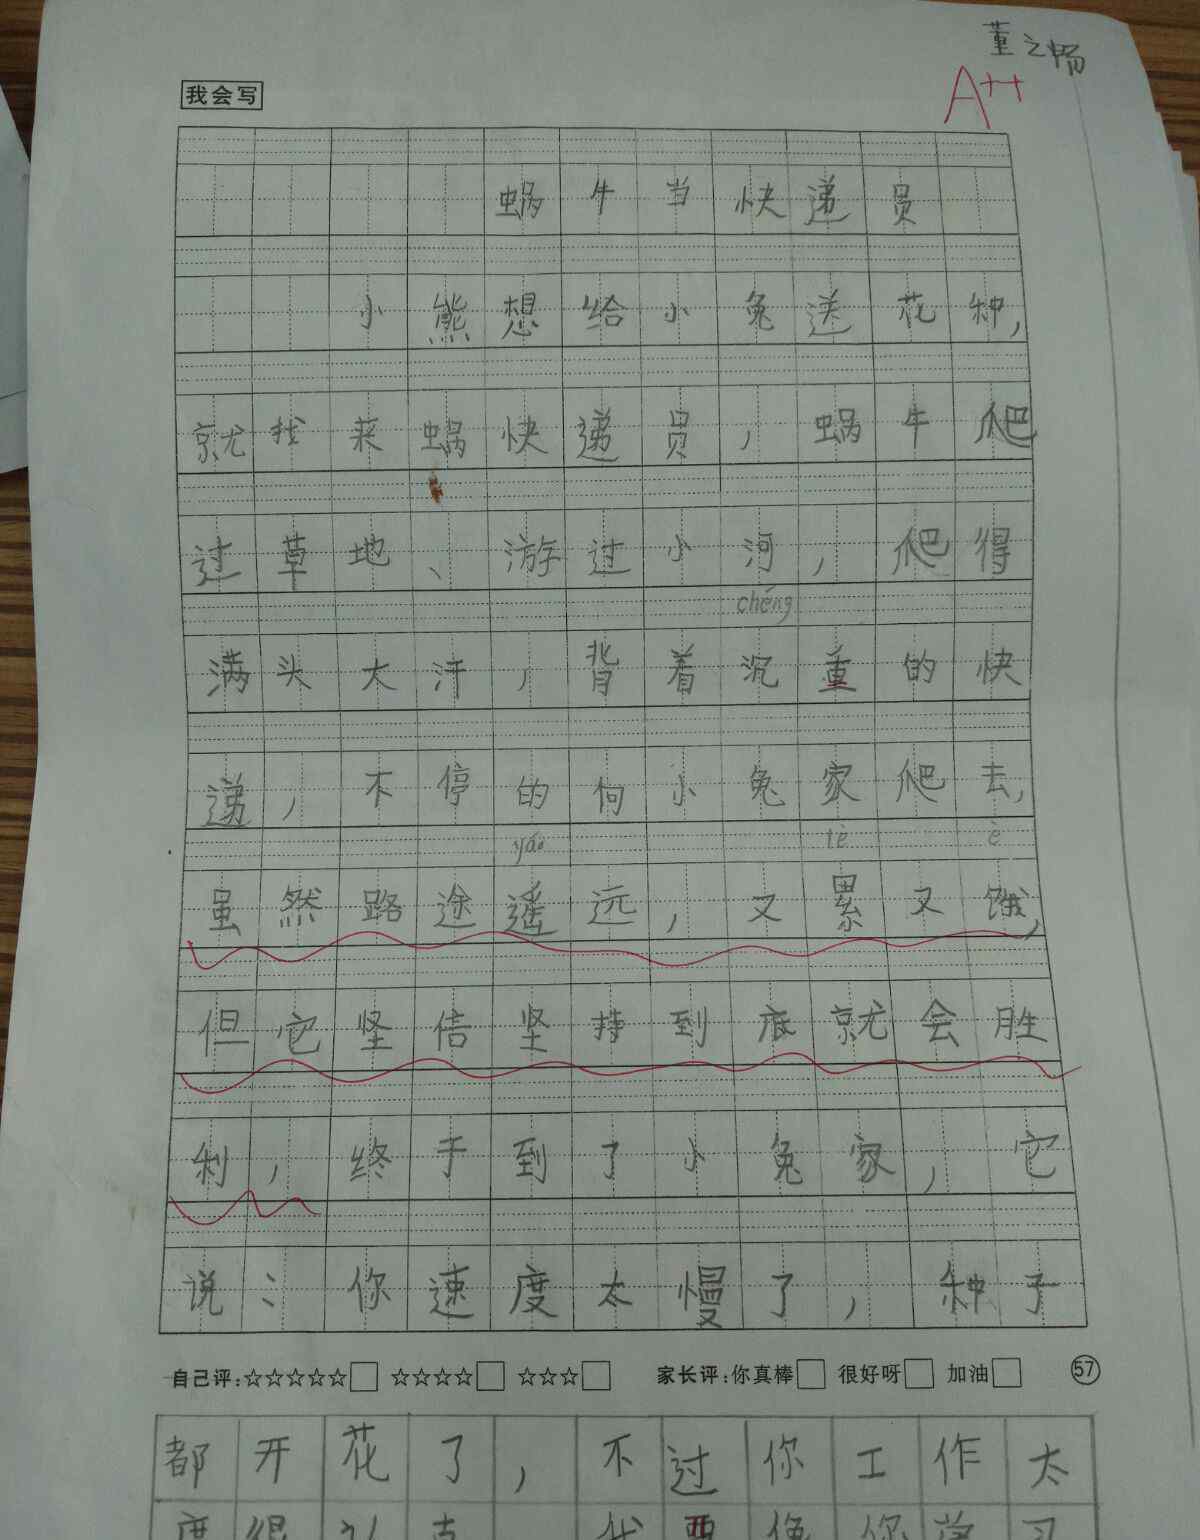 董之畅
A++
我会写
蜗牛当快递员
小熊想给小兔送花种,
就找来蜗快递员,蜗牛爬
过草地、游过小河,爬得
chéng
满头大汗,背着沉重的快
递,不停的向小兔家爬去,
yáo tè è
虽然路途遥远,又累又饿,
但它坚信坚持到底就会胜
利,终于到了小兔家,它
说:你速度太慢了,种子
自己评:☆☆☆☆☆□ ☆☆☆☆□ ☆☆☆□ 家长评:你真棒□ 很好呀□ 加油□ 57
都开花了,不过你工作太